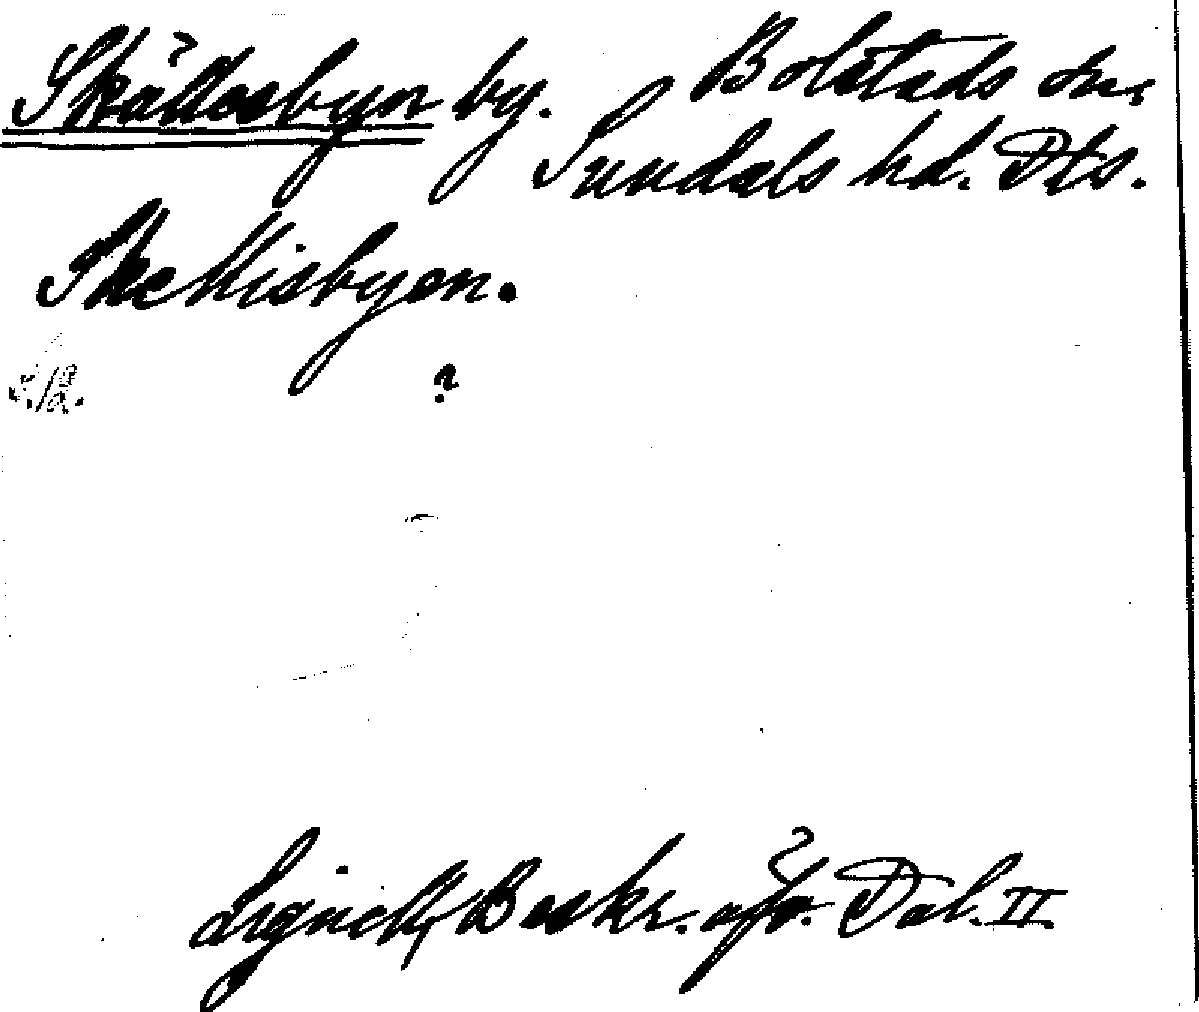 Skällesbyn by. Bolstads sn,
Sundals hd. Dls.
Skellisbyen.
s. 12. ?
Lignell, Beskr. öfv. Dal. II.